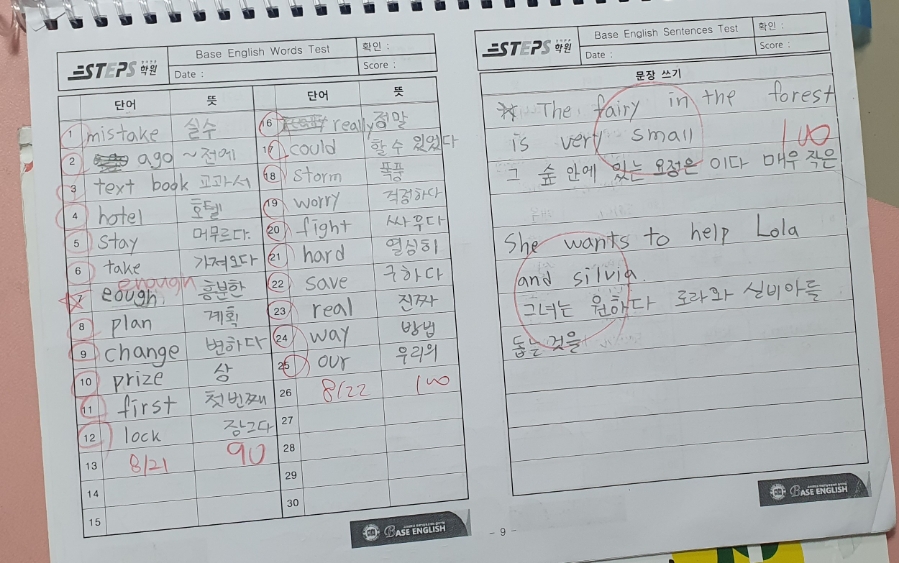 STEPS 학원
Base English Words Test
확인 :
Date :
Score :
단어 뜻 단어 뜻
1 mistake 실수
2 ago ~전에
3 text book 교과서
4 hotel 호텔
5 stay 머무르다.
6 take 가져오다
enough
7 eough 흥분한
8 plan 계획
9 change 변하다
10 prize 상
11 first 첫번째
12 lock 잠그다
13 8/21 90
14
15
16 really 정말
17 could 할 수 있었다
18 storm 폭풍
19 worry 걱정하다
20 fight 싸우다
21 hard 열심히
22 save 구하다
23 real 진짜
24 way 방법
25 our 우리의
26 8/22 100
27
28
29
30
BASE ENGLISH
STEPS 학원
Base English Sentences Test
확인 :
Date :
Score :
문장 쓰기
The fairy in the forest
is very small
100
그 숲 안에 있는 요정은 이다 매우 작은
She wants to help Lola
and silvia.
그녀는 원하다 로라와 실비아를
돕는 것을
BASE ENGLISH
- 9 -